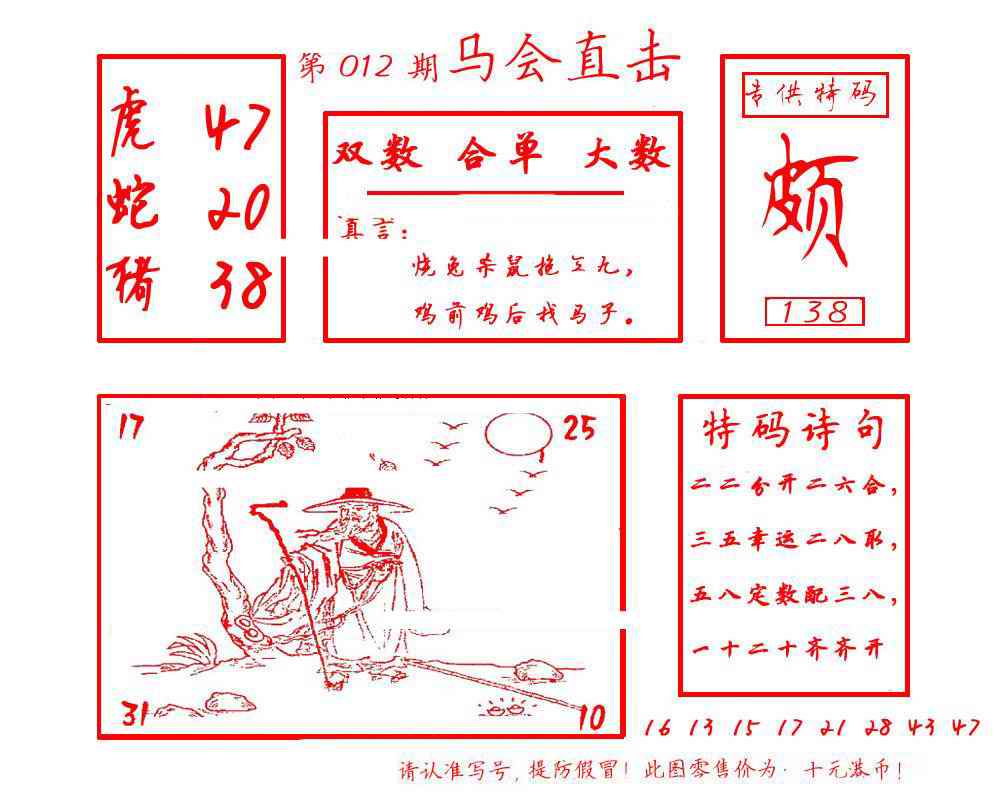 第 012 期 马会直击
虎 47
蛇 20
猪 38
双数 合单 大数
真言：
烧兔杀鼠拖五九，
鸡前鸡后找马子。
专供特码
颇
138
17
25
31
10
特码诗句
二二分开二六合，
三五幸运二八取，
五八定数配三八，
一十二十齐齐开
16 13 15 17 21 28 43 47
请认准写号，提防假冒！此图零售价为·十元港币！